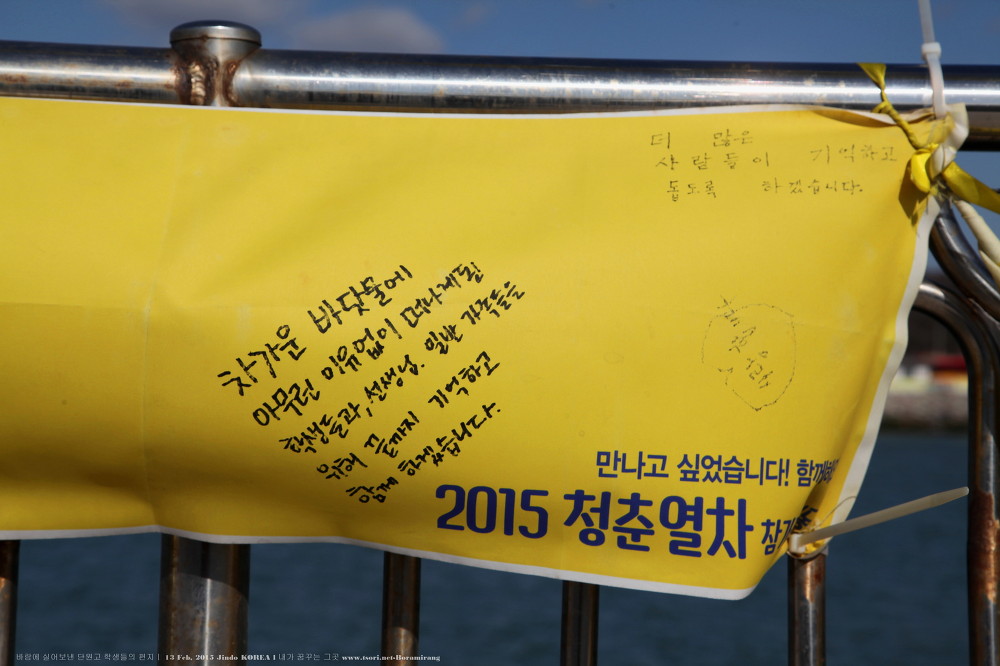 더 많은
사람들이 기억하고
돕도록 하겠습니다.
차가운 바닷물에
아무런 이유없이 떠나게된!
학생들과, 선생님. 일반 가족들을
위해 끝까지 기억하고
함께 하겠습니다.
만나고 싶었습니다!
2015 청춘열차
바람에 실어보낸 단원고 학생들의 편지 | 13 Feb, 2015 Jindo KOREA l 내가 꿈꾸는 그곳 www.tsori.net-Boramirang